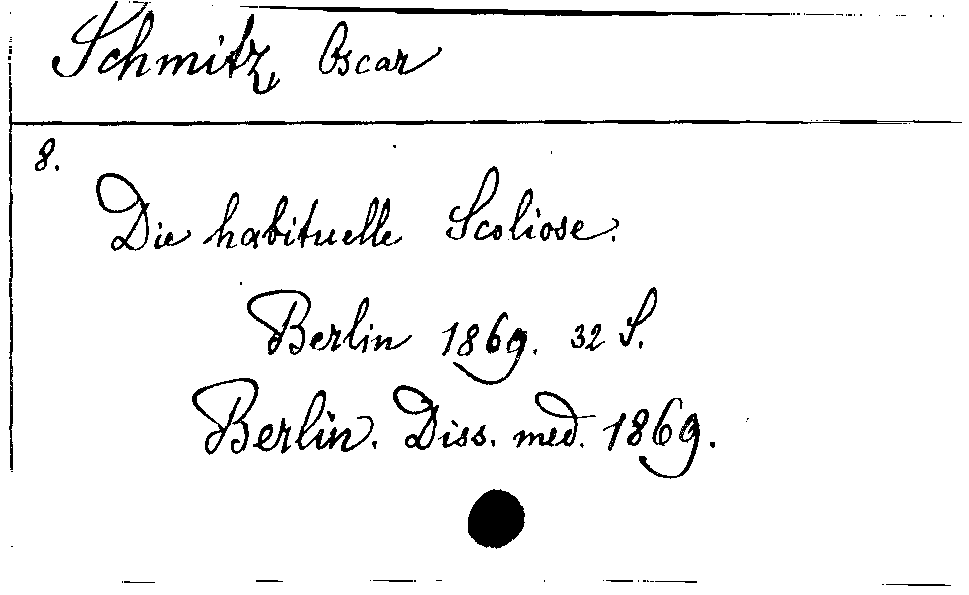 Schmitz Oscar
8.
Die habituelle Scoliose.
Berlin 1869. 32 S.
Berlin. Diss. med. 1869.